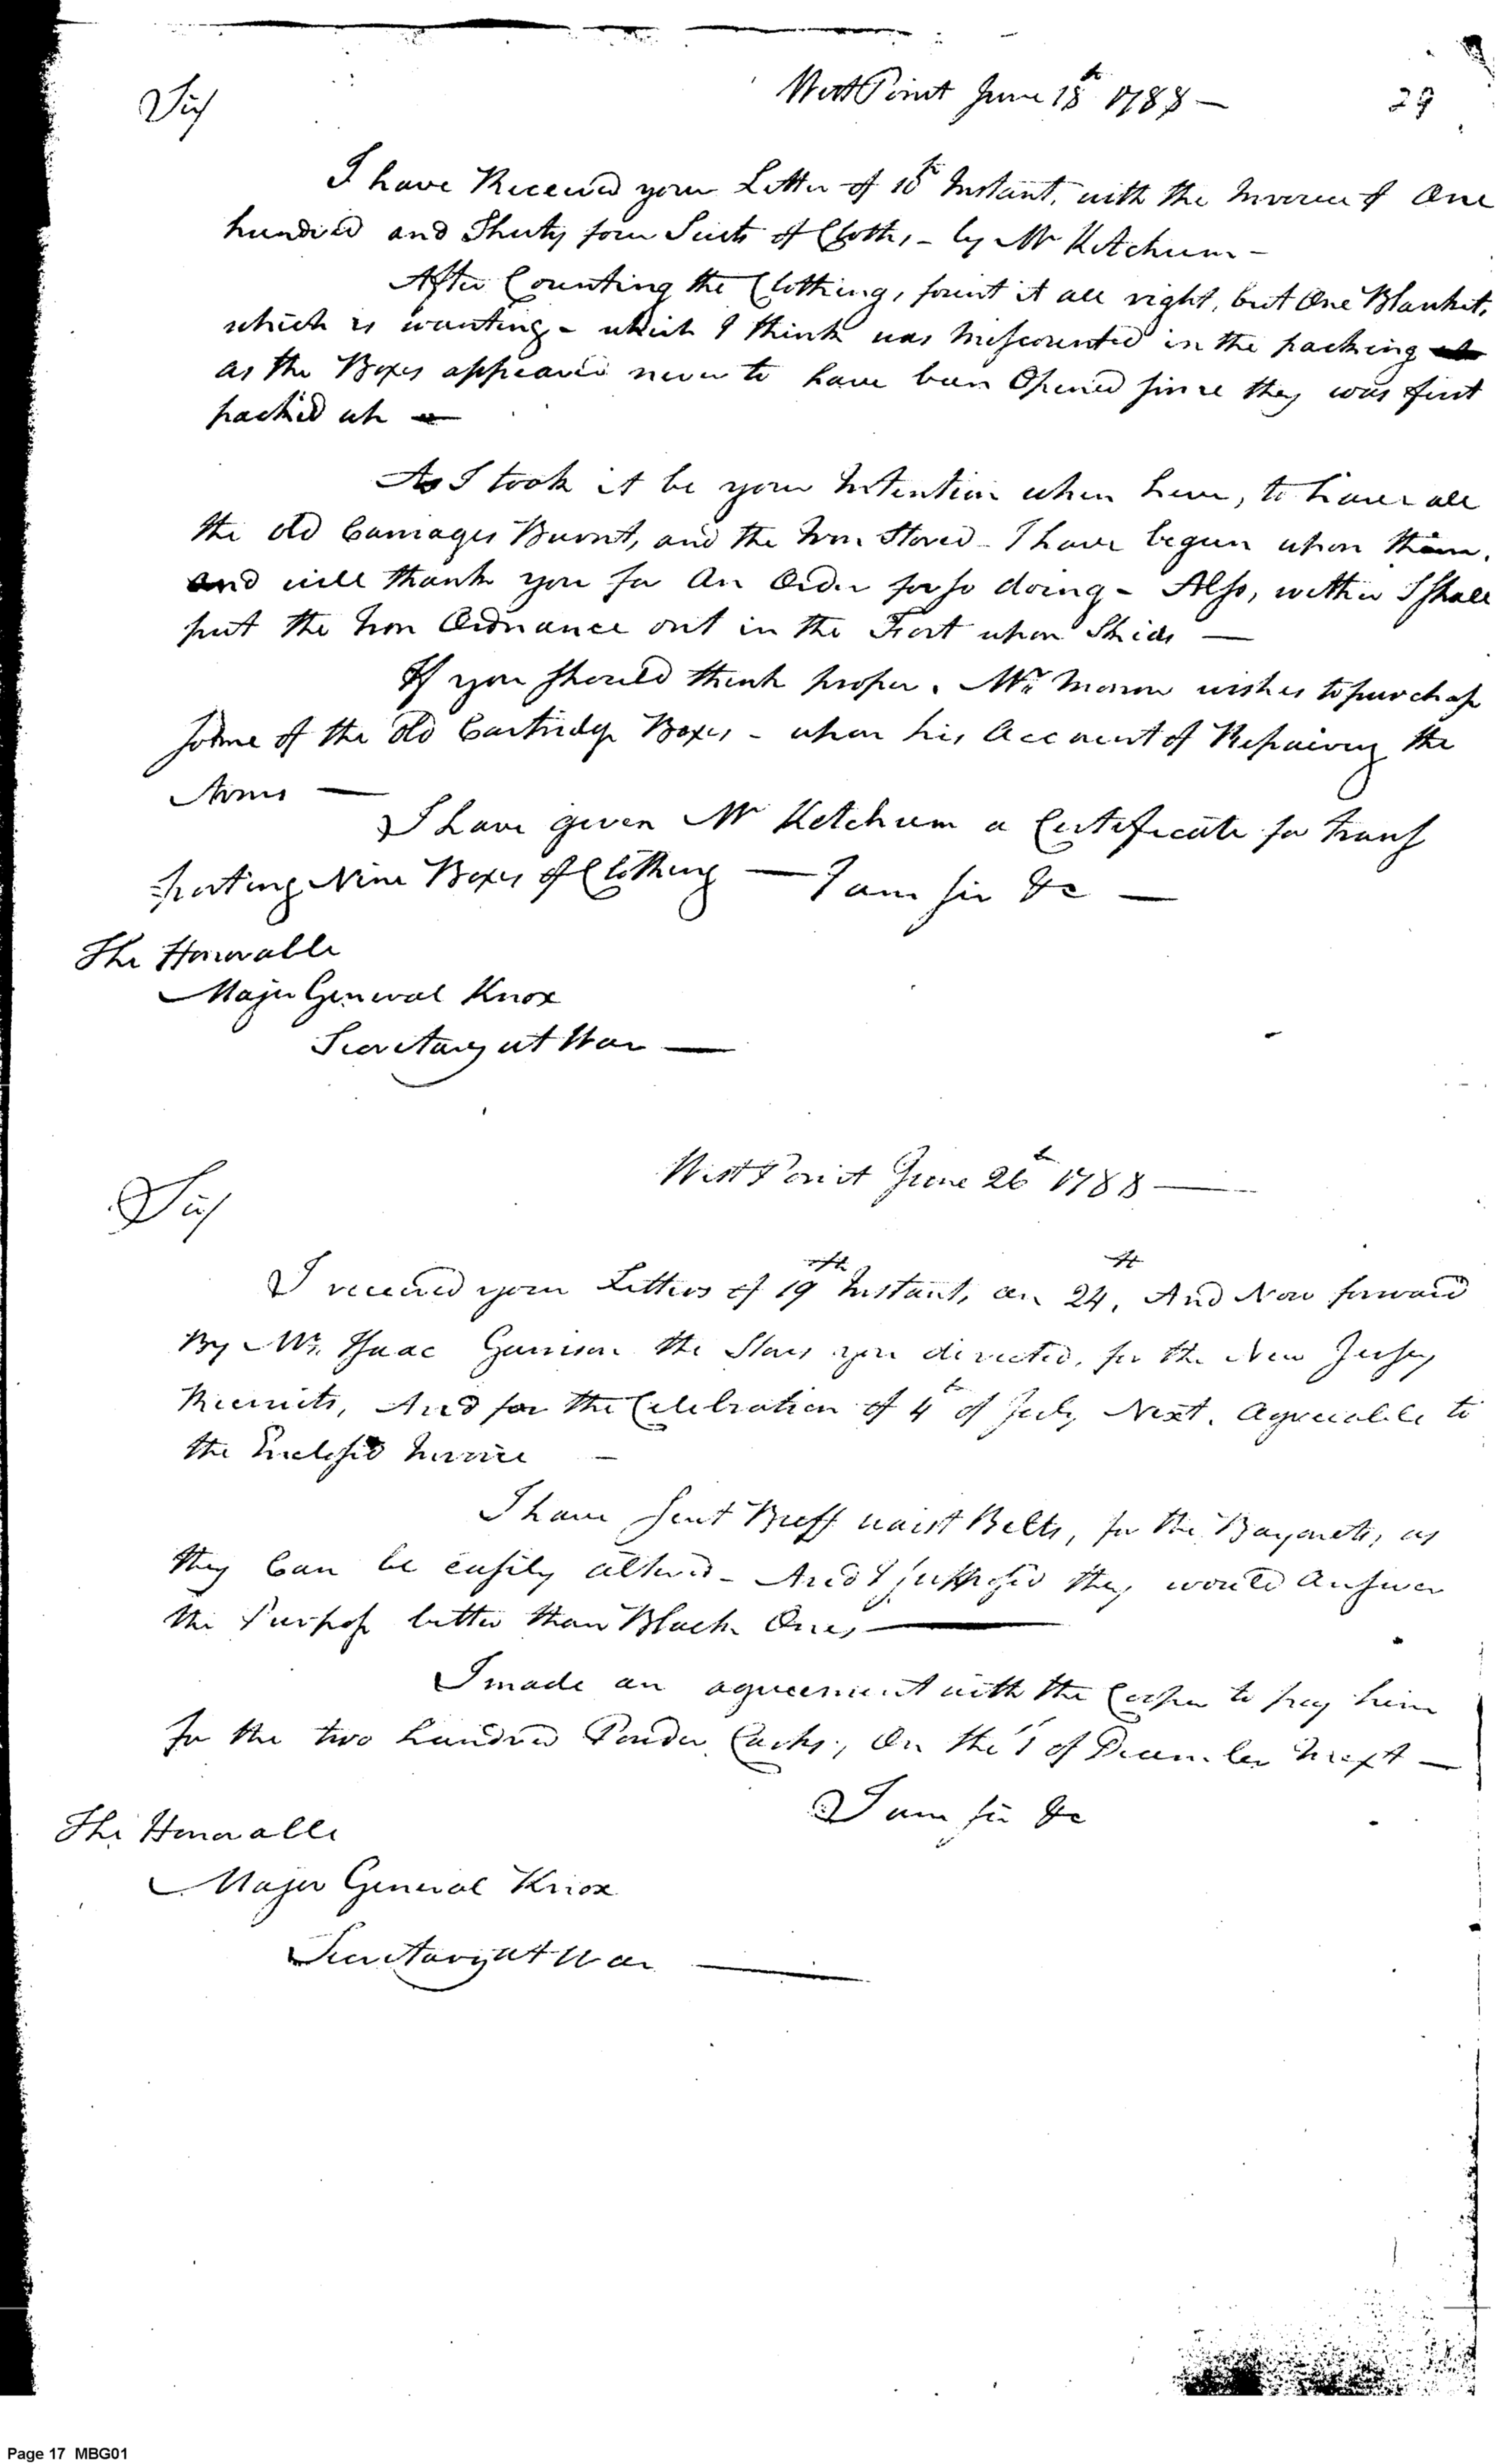 West Point June 18th 1788 —
29
Sir
I have Received your Letter of 10th Instant, with the Invoice of One
hundred and Thirty four Suits of Cloths, - by Mr Ketchum -
After Counting the Clothing, found it all right, but One Blanket,
which is wanting - which I think was Miscounted in the packing
as the Boxes appeared never to have been Opened since they was first
packed up
As I took it be your Intention when here, to have all
the old Carriages Burnt, and the Iron Stored - I have begun upon them,
and will thank you for An Order for so doing - Also, wether I shall
put the Iron Ordnance out in the Fort upon Skids —
If you should think proper. Mr. Morrow wishes to purchase
some of the old Cartridge Boxes - upon his Account of Repairing the
Arms —
I have given Mr Ketchum a Certificate for trans
porting Nine Boxes of Clothing — I am sir &c —
The Honorable
Major General Knox
Secretary at War —
West Point June 26th 1788 —
Sir
I received your Letters of 19th Instant, an 24th, And Now forward
By Mr. Isaac Garrison the Stores you directed, for the New Jersey
Recruits, And for the Celebration of 4th of July Next. Agreeable to
the Enclosed Invoice —
I have sent Buff waist Belts, for the Bayonets, as
they Can be easily altered - And I supposed they would Answer
the Purpose better than Black Ones —
I made an agreement with the Cooper to pay him
for the two hundred Powder Casks, On the 1st of December Next —
I am sir &c
The Honorable
Major General Knox
Secretary at War —
Page 17 MBG01